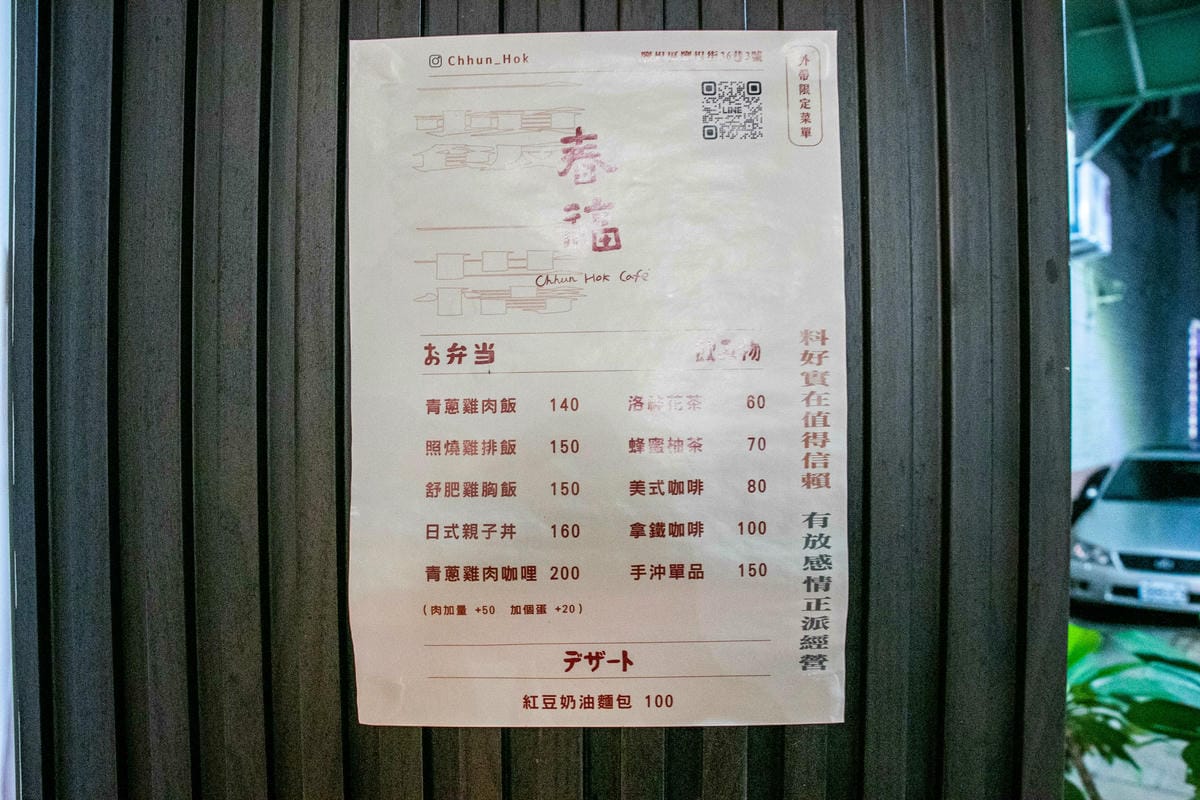 Chhun_Hok
鹽埕區鹽埕街16巷3號
外帶限定菜單
LINE
春福
Chhun Hok Café
お弁当
飲み物
青蔥雞肉飯 140
洛神花茶 60
照燒雞排飯 150
蜂蜜柚茶 70
舒肥雞胸飯 150
美式咖啡 80
日式親子丼 160
拿鐵咖啡 100
青蔥雞肉咖哩 200
手沖單品 150
(肉加量 +50 加個蛋 +20)
デザート
紅豆奶油麵包 100
料好實在值得信賴 有放感情正派經營